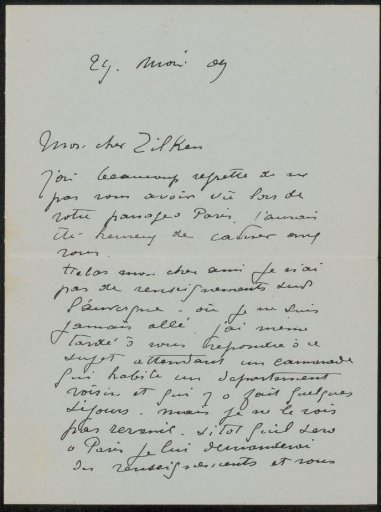 29. Mai 09
Mon cher Zilken
J'ai beaucoup regretté de ne
pas vous avoir vu lors de
votre passage à Paris. J'aurais
été heureux de causer avec
vous.
Helas mon cher ami je n'ai
pas de renseignements sur
l'auvergne - où je ne suis
jamais allé. j'ai meme
tardé à vous repondre à ce
sujet attendant un camarade
qui habite un departement
voisin et qui y a fait quelques
séjours. mais je ne le vois
pas revenir. sitot qu'il sera
à Paris je lui demanderai
des renseignements et vous